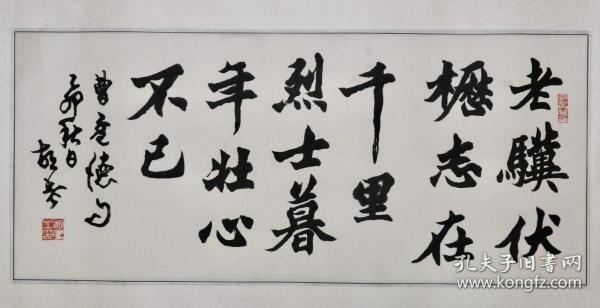 老骥伏
枥志在
千里
烈士暮
年壮心
不已
曹孟德句
乙卯秋日
孔夫子旧书网
www.kongfz.com